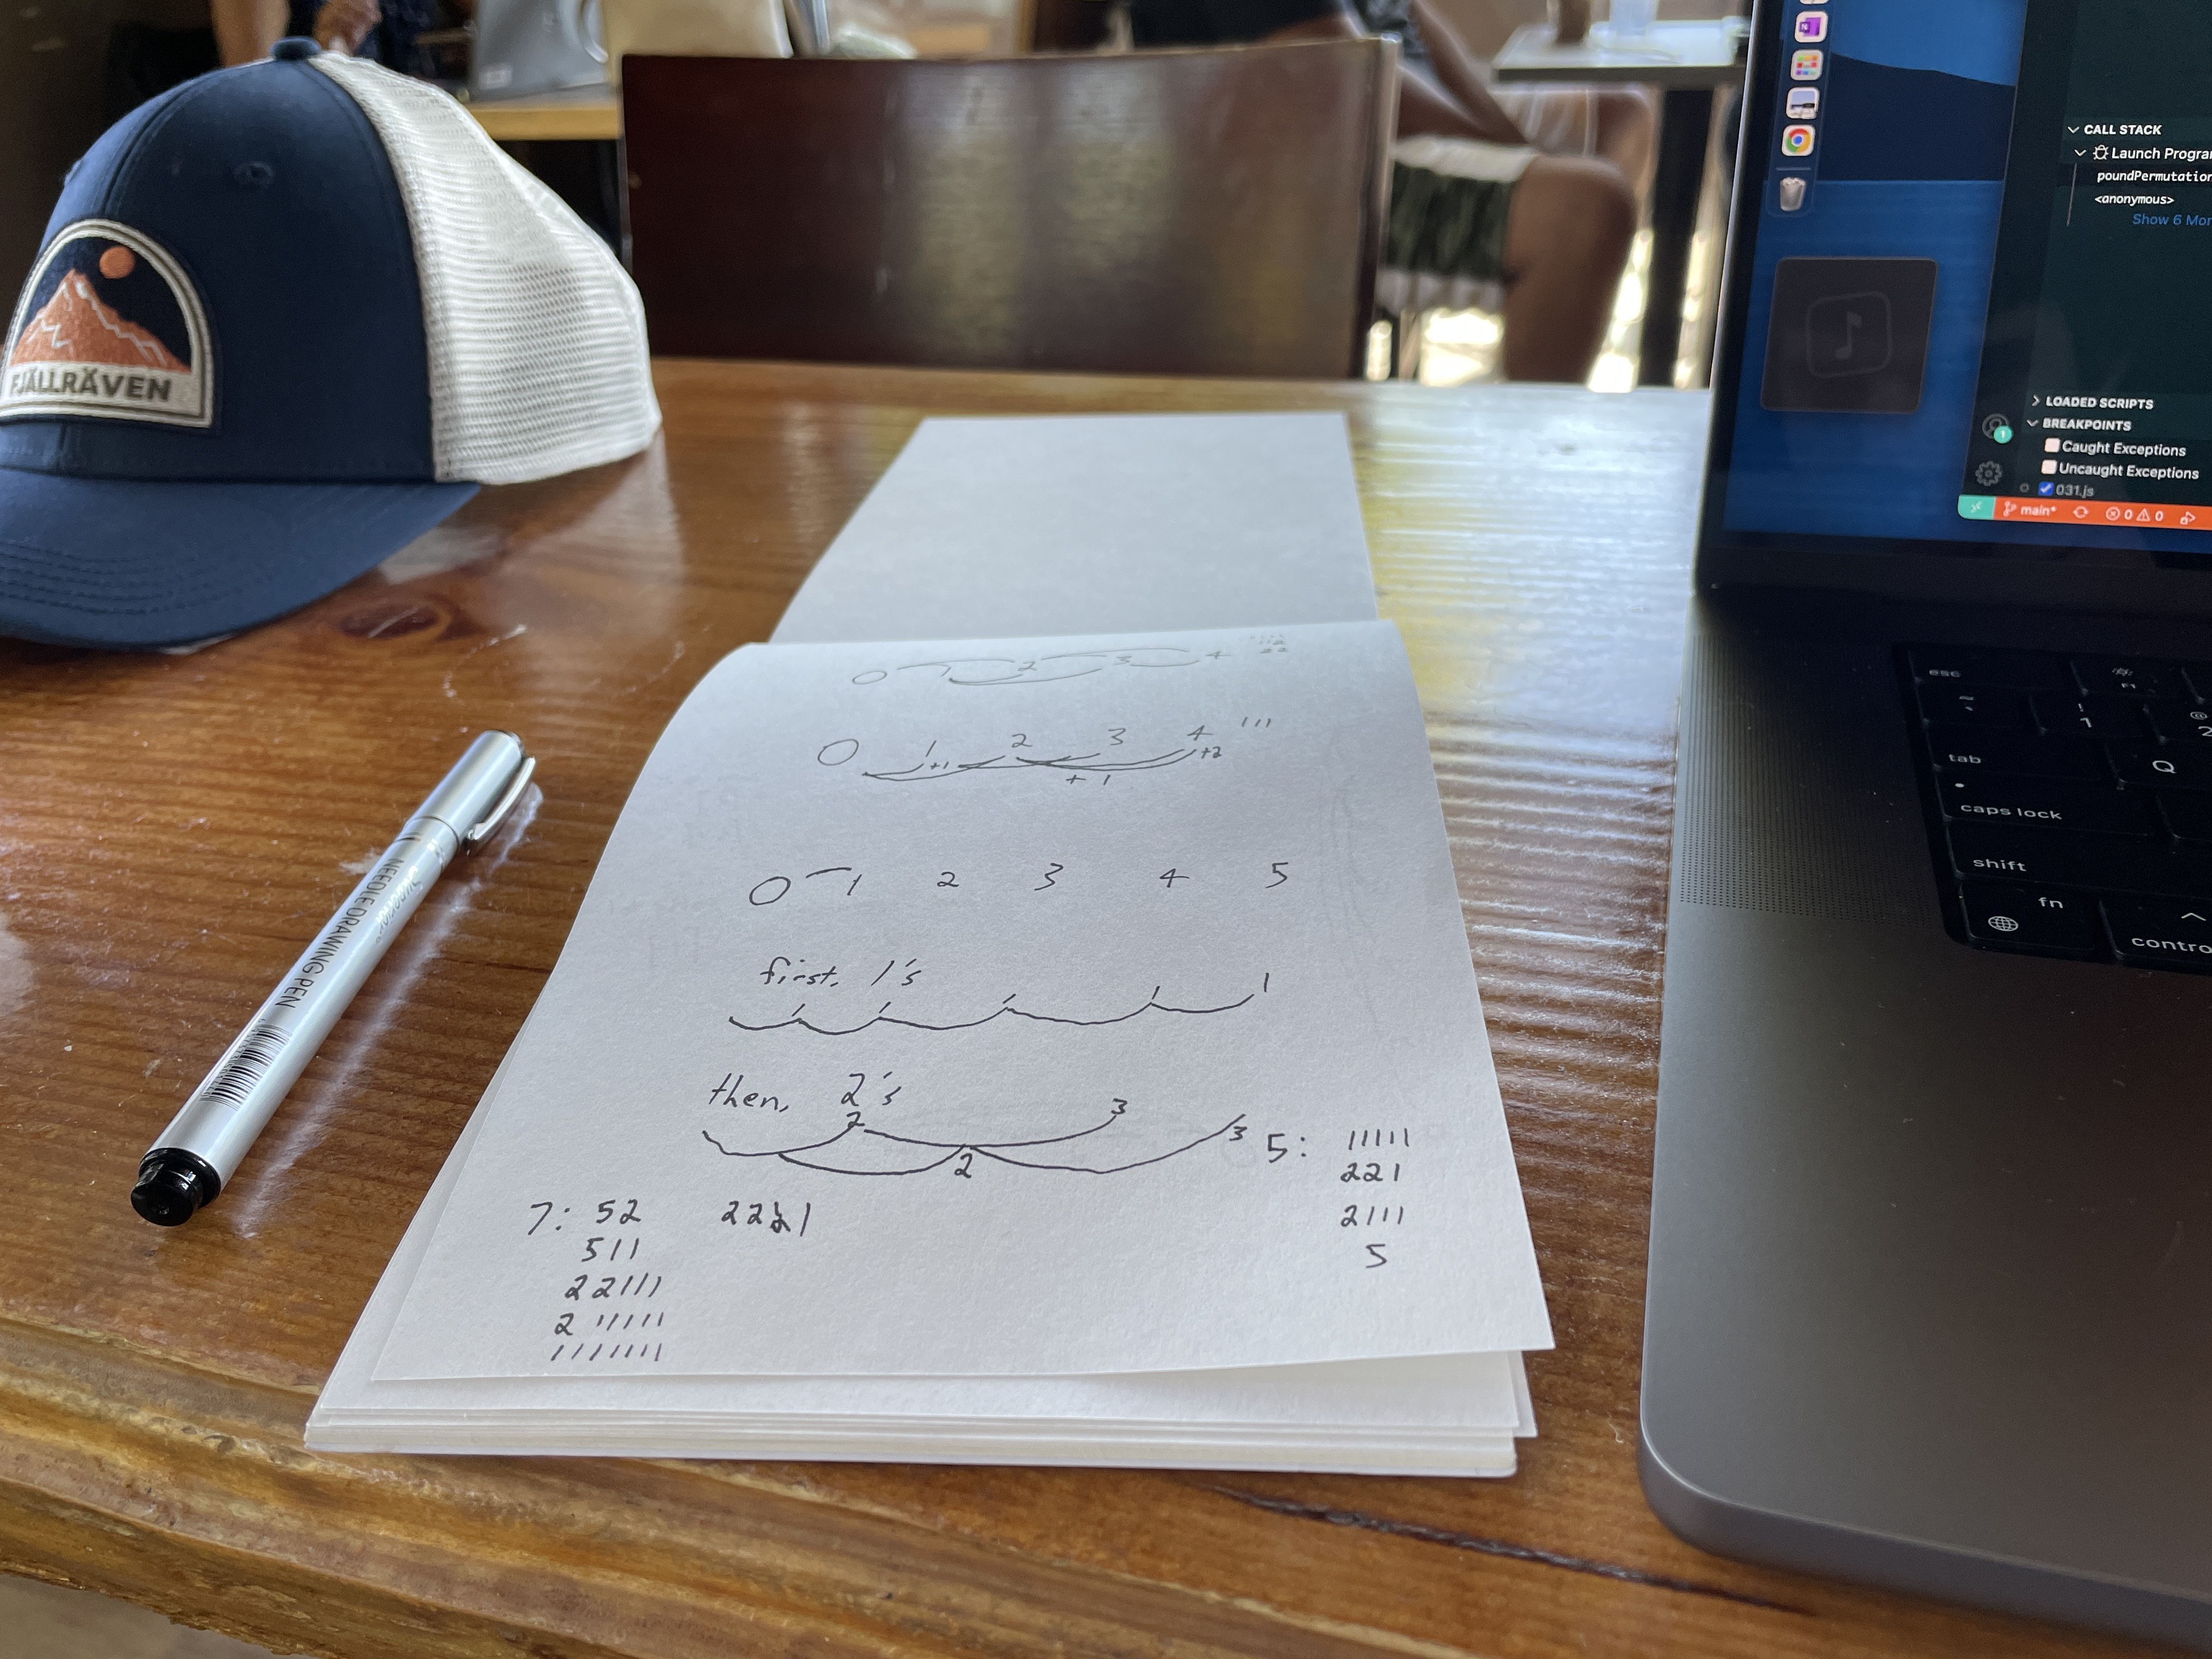 FJÄLLRÄVEN
NEEDLE DRAWING PEN
0 1 2 3 4
22
0 1 2 3 4 111
+1 +1 +2
0 1 2 3 4 5
first, 1's
1 1 1 1 1
then, 2's
2 3
2 3
5: 11111
221
2111
5
7: 52
511
22111
2 11111
1111111
CALL STACK
Launch Progra
poundPermutation
<anonymous>
Show 6 Mor
LOADED SCRIPTS
BREAKPOINTS
Caught Exceptions
Uncaught Exceptions
031.js
main*
0 0
1
esc
F1
~
!
1
@
2
tab
Q
caps lock
shift
fn
contro